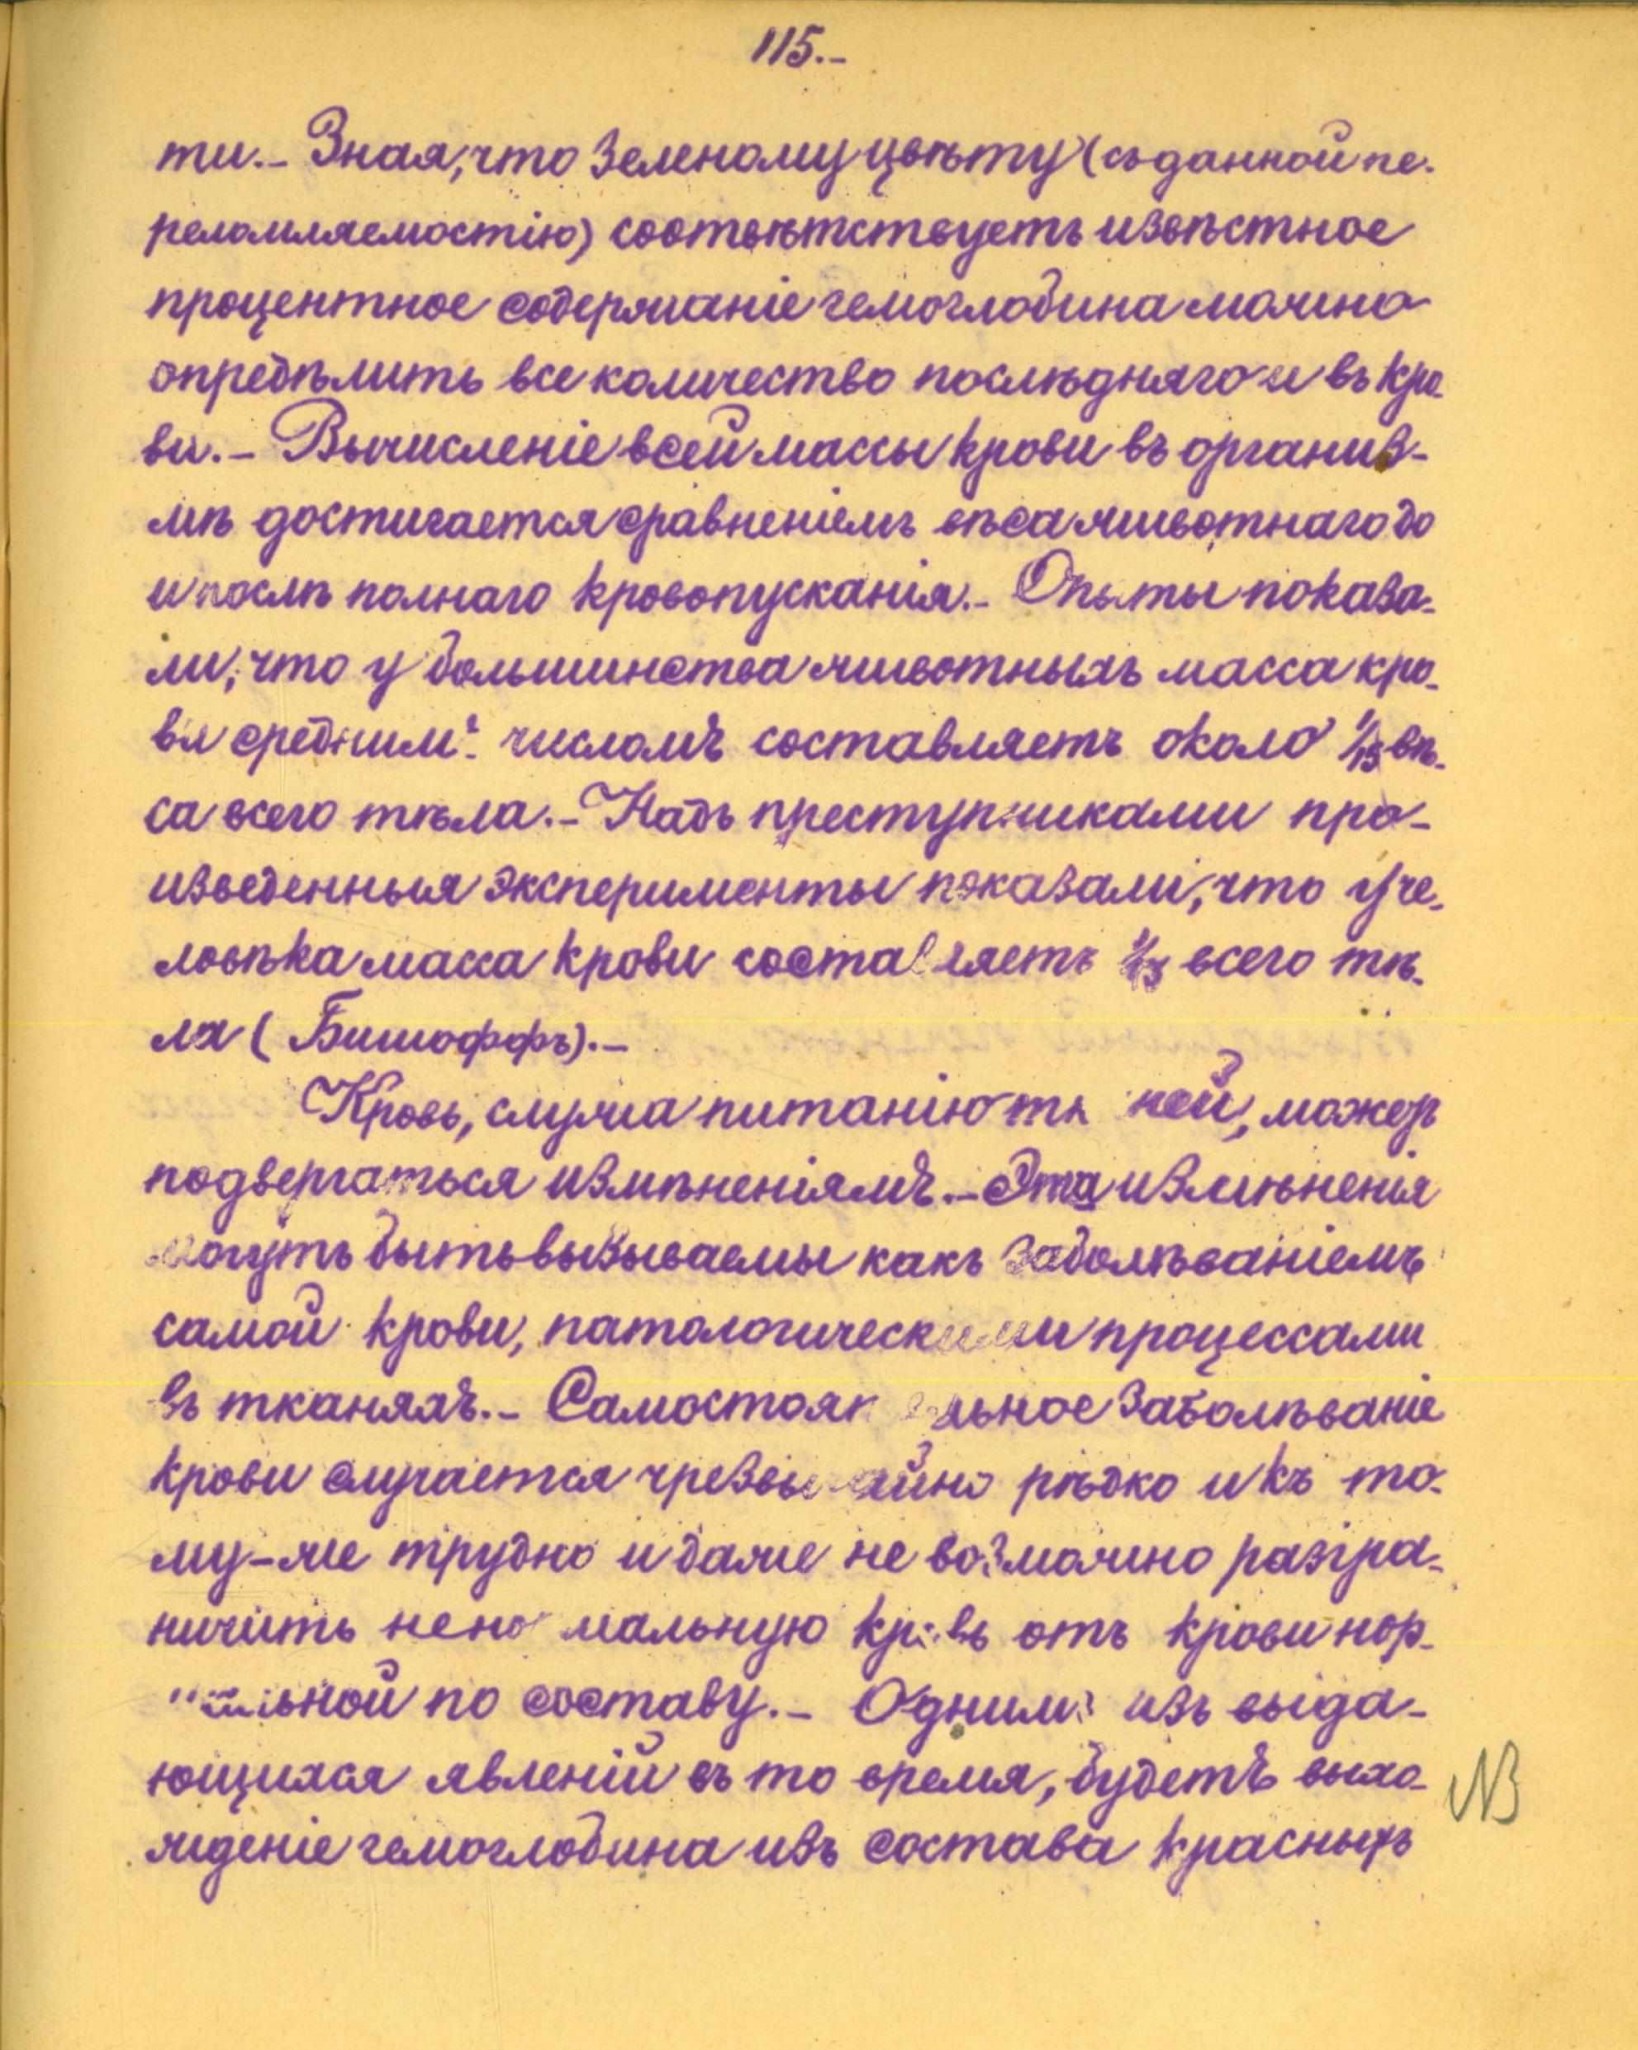 115.-
ти.- Зная, что зеленому цвѣту (съ данной пе-
реломляемостію) соотвѣтствуетъ извѣстное
процентное содержаніе гемоглобина можно
опредѣлить все количество послѣдняго и въ кро-
ви.- Вычисленіе всей массы крови въ организ-
мѣ достигается сравненіемъ вѣса животнаго до
и послѣ полнаго кровопусканія.- Опыты показа-
ли, что у большинства животныхъ масса кро-
ви среднимъ числомъ составляетъ около 1/13 вѣ-
са всего тѣла.- Надъ преступниками про-
изведенныя эксперименты показали, что у че-
ловѣка масса крови составляетъ 1/13 всего тѣ-
ла (Бишоффъ).-
Кровь, служа питанію тканей, можетъ
подвергаться измѣненіямъ.- Эта измѣненія
могутъ быть вызываемы какъ заболѣваніемъ
самой крови, патологическими процессами
въ тканяхъ.- Самостоятельное заболѣваніе
крови случается чрезвычайно рѣдко и къ то-
му-же трудно и даже не возможно разгра-
ничить ненормальную кровь отъ крови нор-
мальной по составу.- Однимъ изъ выда-
ющихся явленій въ то время, будетъ выхо-
жденіе гемоглобина изъ состава красныхъ
NB